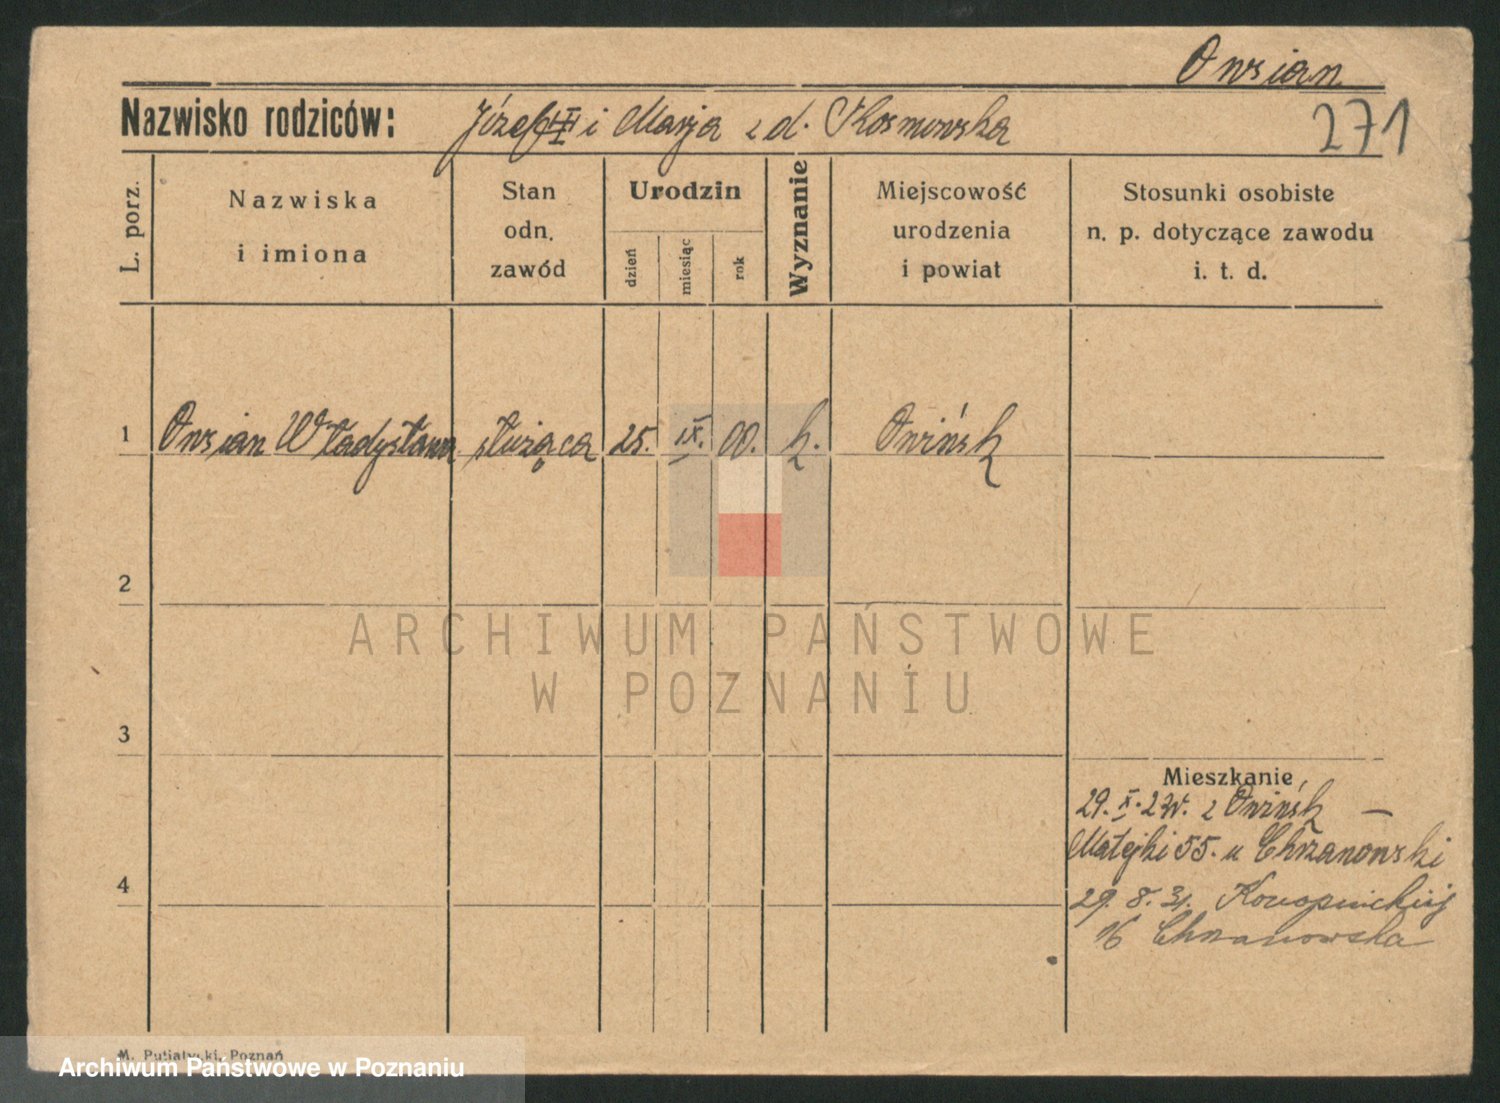 Owsian
Nazwisko rodziców: Józef i Marja z d. Kosmowska
271
L. porz.
Nazwiska
i imiona
Stan
odn.
zawód
Urodzin
dzień
miesiąc
rok
Wyznanie
Miejscowość
urodzenia
i powiat
Stosunki osobiste
n. p. dotyczące zawodu
i. t. d.
1 Owsian Władysława służąca 25. IX. 00. k. Owińsk
2
ARCHIWUM PAŃSTWOWE
W POZNANIU
3
Mieszkanie
29. X. z Owińsk —
Matejki 55. u Chrzanowski
4
29. 8. 31. Konopnickiej
16 Chrzanowska
M. Putiatycki, Poznań
Archiwum Państwowe w Poznaniu